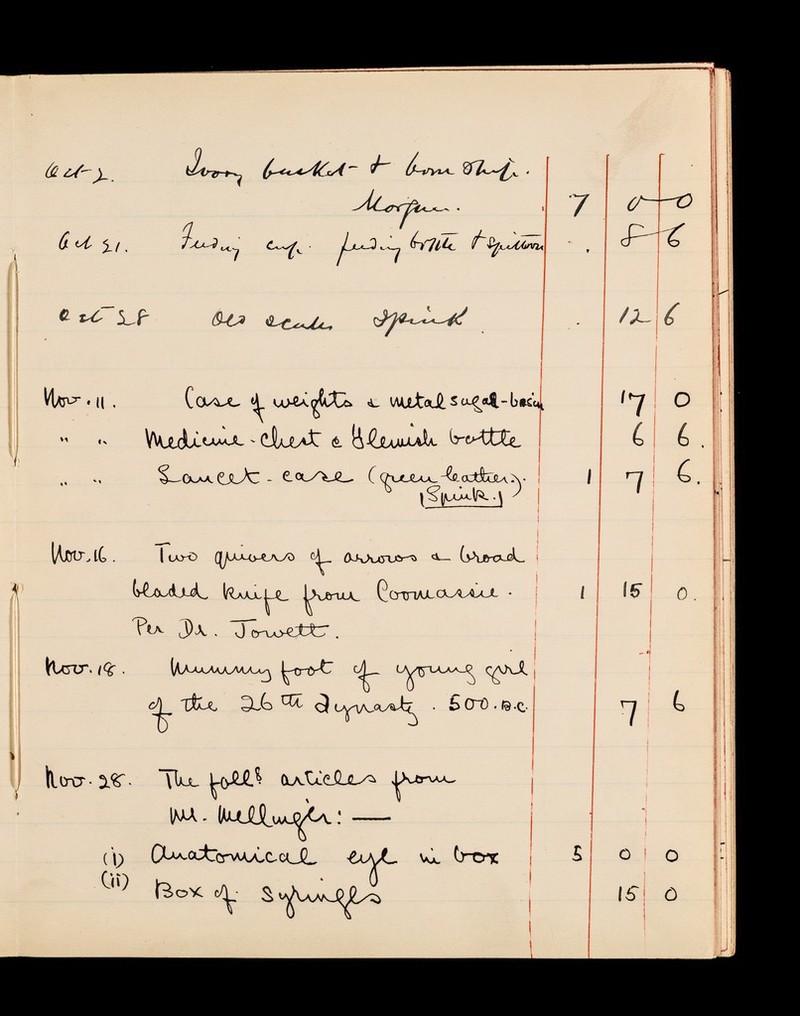 Oct 2. Ivory basket & bone ship.
Morgan. 7 0 0
Oct 21. Feeding cup. feeding bottle & spittoon . . 8 6
Oct 28 Old scales Spink . 12 6
Nov. 11. Case of weights & metal sugar-basin 17 0
" " Medicine-chest & Glemish bottle 6 6.
" " Lancet-case (green leather.). 1 7 6.
(Spink.)
Nov. 16. Two quivers of arrows & broad
bladed knife from Coomassie. 1 15 0.
Per Dr. Jowett.
Nov. 18. Mummy foot of young girl
of the 26th dynasty. 500. B.C. 7 6
Nov. 28. The follg articles from
Mr. Mellinger: —
(i) Anatomical eye in box 5 0 0
(ii) Box of Syringes 15 0